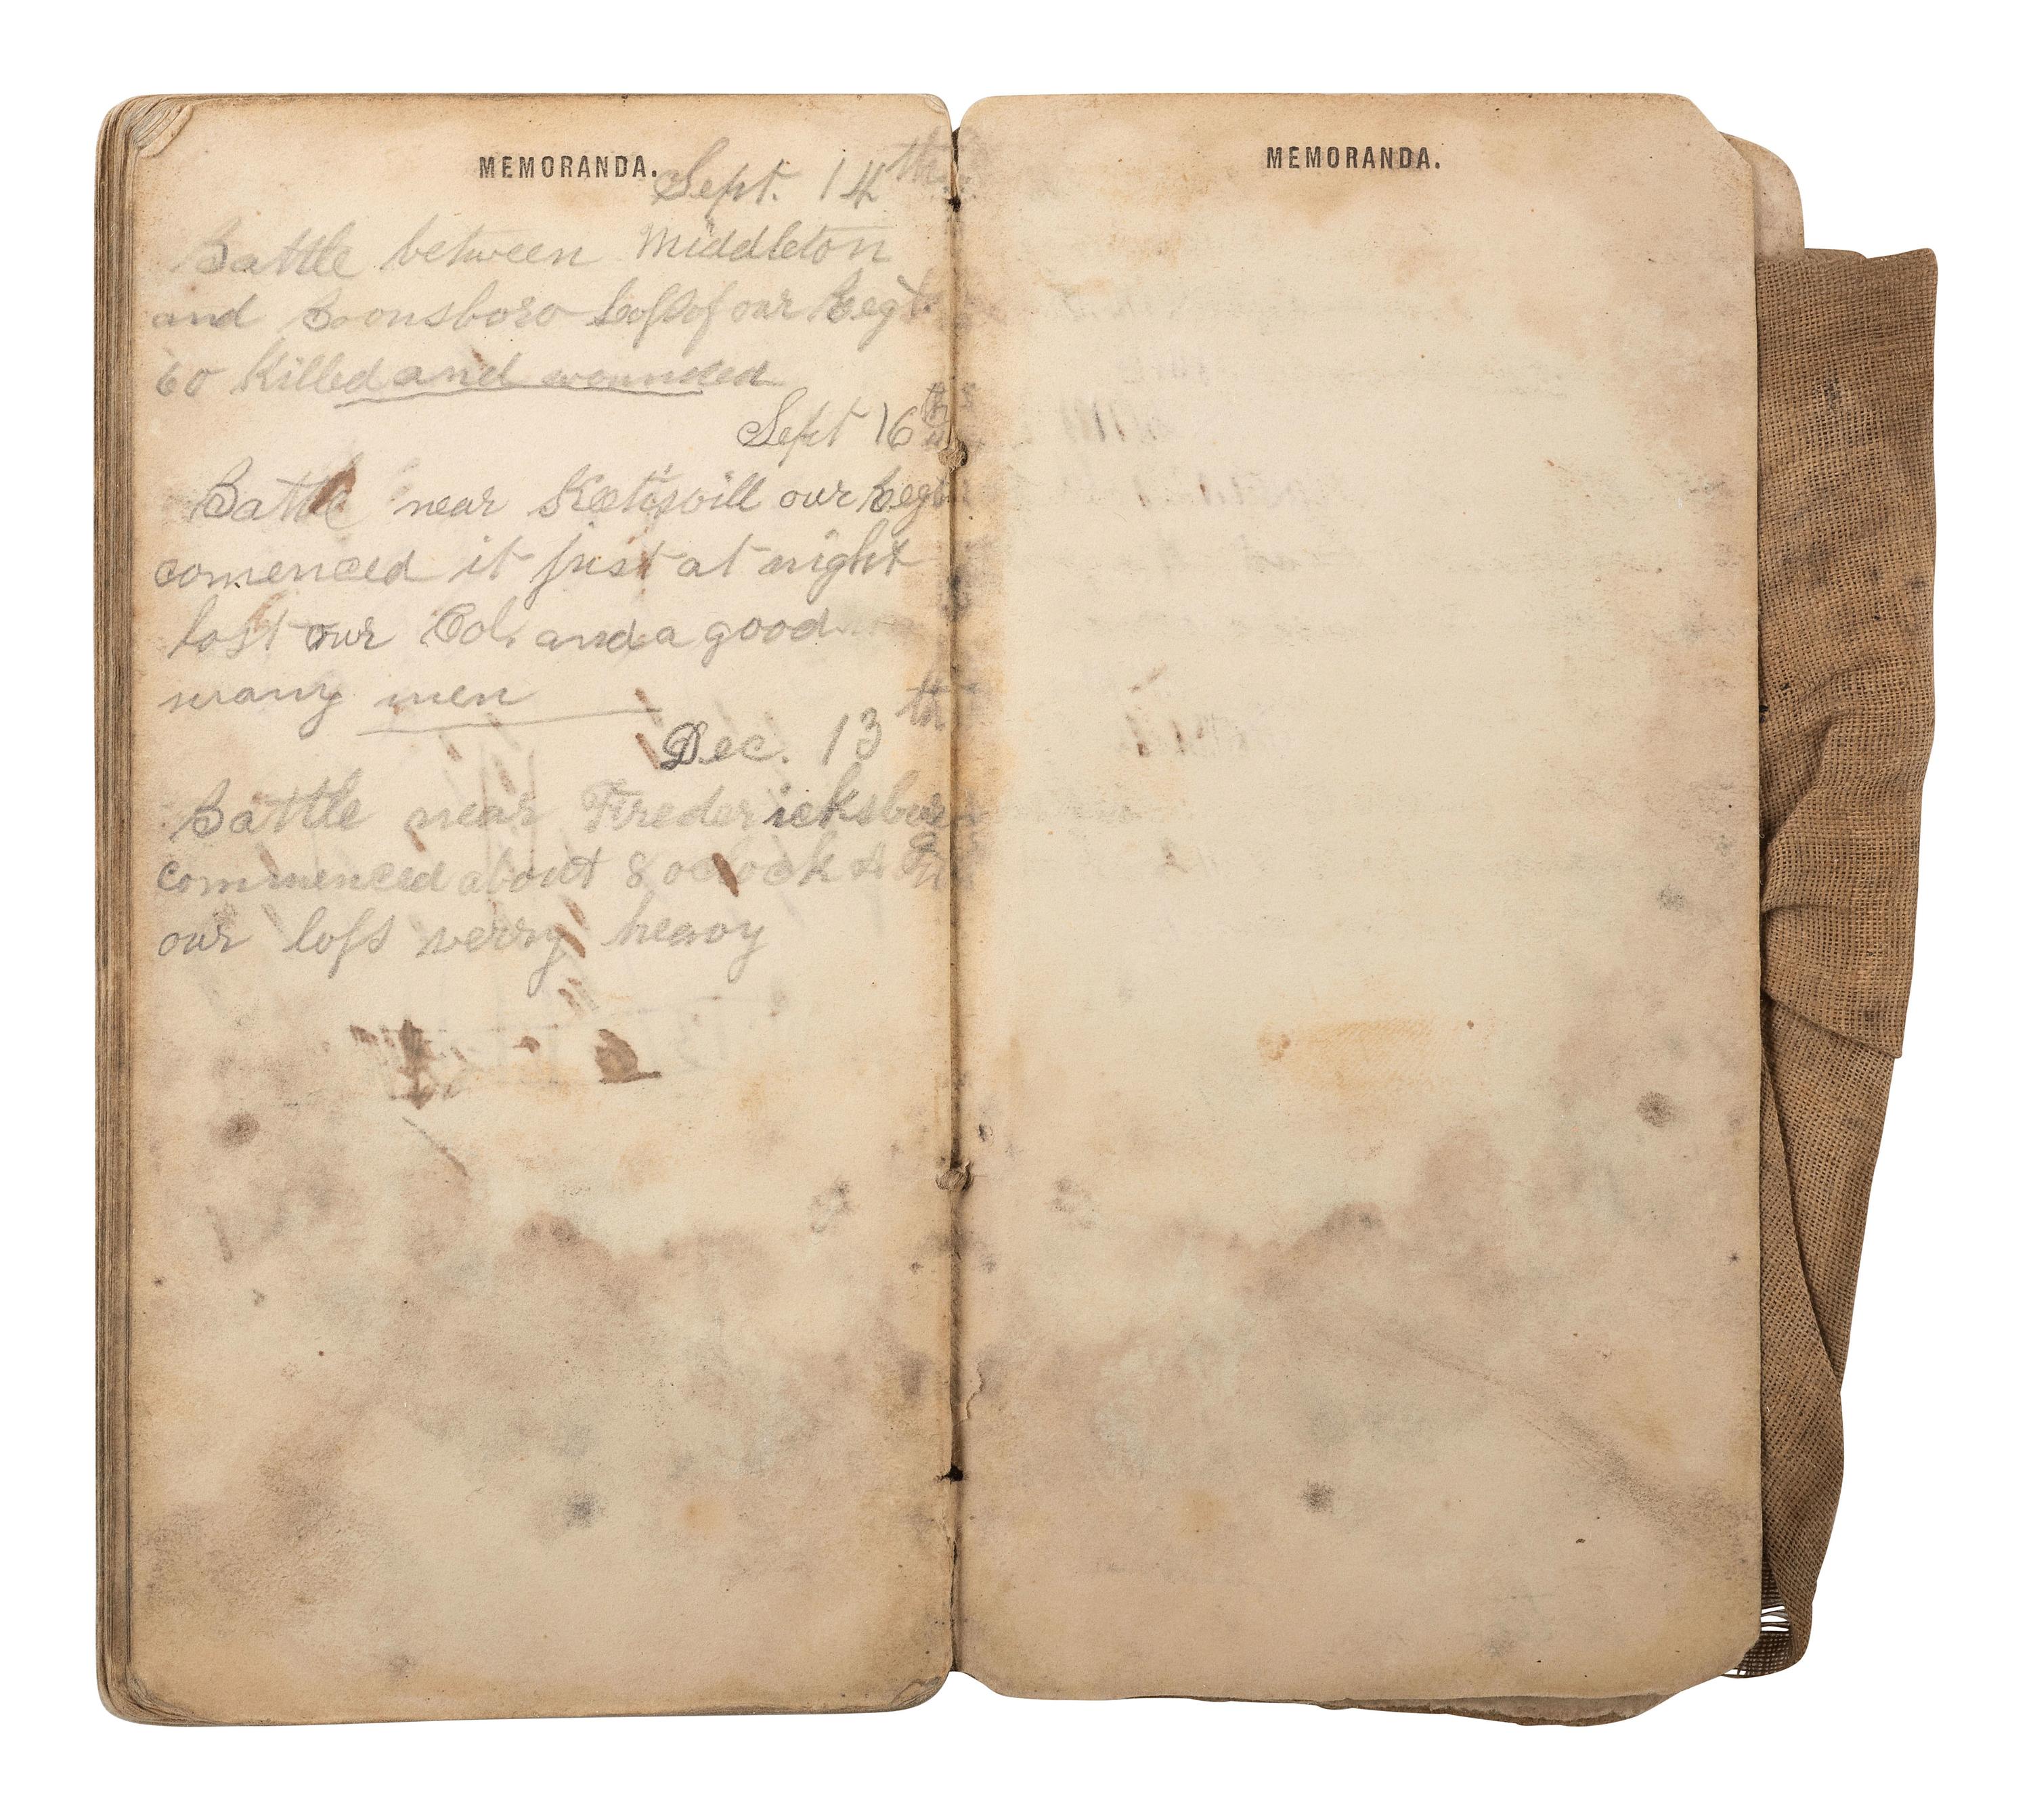 MEMORANDA.
Sept. 14th
Battle between Middleton
and Boonsboro Loss of our Regt.
60 Killed and wounded
Sept 16th
Battle near Keetisvill our Regt
comenced it just at night
lost our Col. and a good
many men
Dec. 13th
Battle near Fredericksbur
commenced about 8 oclock A
our loss verry heavy
MEMORANDA.